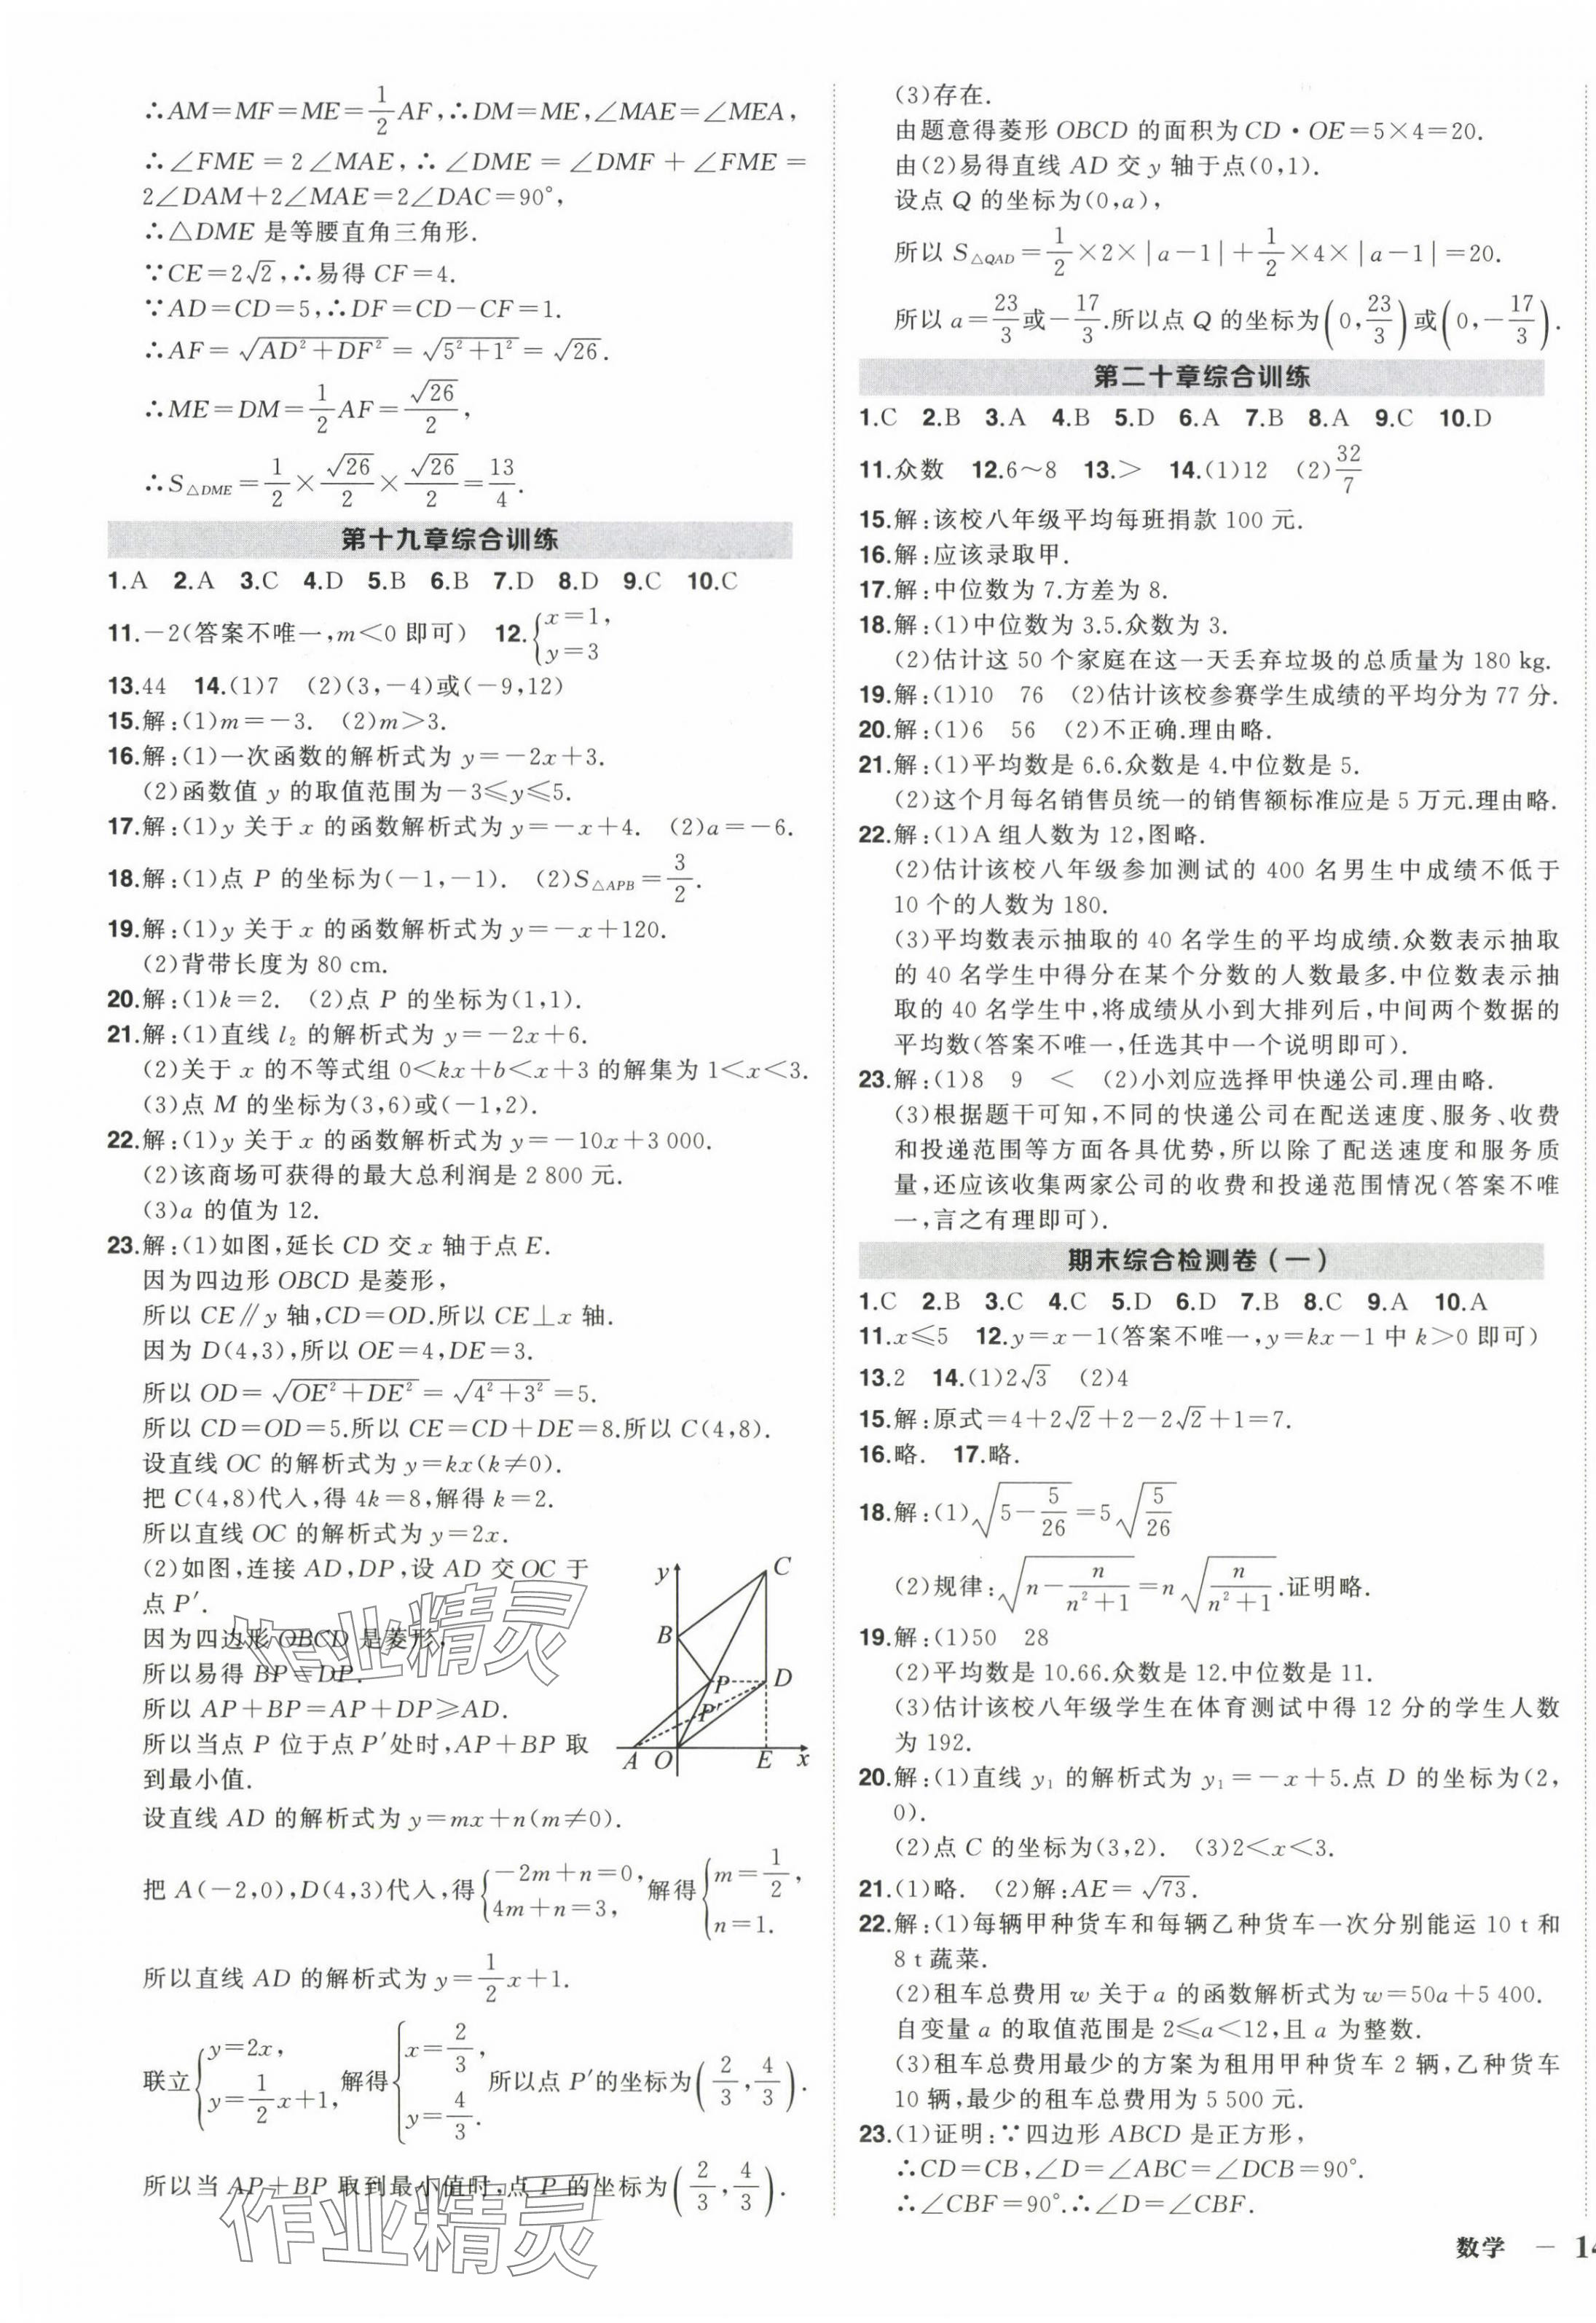 ∴AM=MF=ME=1/2AF,∴DM=ME,∠MAE=∠MEA,
∴∠FME=2∠MAE,∴∠DME=∠DMF+∠FME=
2∠DAM+2∠MAE=2∠DAC=90°,
∴△DME 是等腰直角三角形.
∵CE=2√2,∴易得 CF=4.
∵AD=CD=5,∴DF=CD-CF=1.
∴AF=√(AD²+DF²)=√(5²+1²)=√26.
∴ME=DM=1/2AF=√26/2,
∴S△DME=1/2×√26/2×√26/2=13/4.
第十九章综合训练
1.A 2.A 3.C 4.D 5.B 6.B 7.D 8.D 9.C 10.C
11.-2(答案不唯一,m<0 即可) 12.{x=1, y=3
13.44 14.(1)7 (2)(3,-4)或(-9,12)
15.解:(1)m=-3. (2)m>3.
16.解:(1)一次函数的解析式为 y=-2x+3.
(2)函数值 y 的取值范围为-3≤y≤5.
17.解:(1)y 关于 x 的函数解析式为 y=-x+4. (2)a=-6.
18.解:(1)点 P 的坐标为(-1,-1). (2)S△APB=3/2.
19.解:(1)y 关于 x 的函数解析式为 y=-x+120.
(2)背带长度为 80 cm.
20.解:(1)k=2. (2)点 P 的坐标为(1,1).
21.解:(1)直线 l₂ 的解析式为 y=-2x+6.
(2)关于 x 的不等式组 0<kx+b<x+3 的解集为 1<x<3.
(3)点 M 的坐标为(3,6)或(-1,2).
22.解:(1)y 关于 x 的函数解析式为 y=-10x+3 000.
(2)该商场可获得的最大总利润是 2 800 元.
(3)a 的值为 12.
23.解:(1)如图,延长 CD 交 x 轴于点 E.
因为四边形 OBCD 是菱形,
所以 CE∥y 轴,CD=OD.所以 CE⊥x 轴.
因为 D(4,3),所以 OE=4,DE=3.
所以 OD=√(OE²+DE²)=√(4²+3²)=5.
所以 CD=OD=5.所以 CE=CD+DE=8.所以 C(4,8).
设直线 OC 的解析式为 y=kx(k≠0).
把 C(4,8)代入,得 4k=8,解得 k=2.
所以直线 OC 的解析式为 y=2x.
(2)如图,连接 AD,DP,设 AD 交 OC 于
点 P′.
因为四边形 OBCD 是菱形,
所以易得 BP=DP.
所以 AP+BP=AP+DP≥AD.
所以当点 P 位于点 P′处时,AP+BP 取
到最小值.
y C
B
P D
P′
A O E x
设直线 AD 的解析式为 y=mx+n(m≠0).
把 A(-2,0),D(4,3)代入,得{-2m+n=0, 4m+n=3, 解得{m=1/2, n=1.
所以直线 AD 的解析式为 y=1/2x+1.
联立{y=2x, y=1/2x+1, 解得{x=2/3, y=4/3. 所以点 P′的坐标为(2/3,4/3).
所以当 AP+BP 取到最小值时,点 P 的坐标为(2/3,4/3).
作业精灵
作业精灵
(3)存在.
由题意得菱形 OBCD 的面积为 CD·OE=5×4=20.
由(2)易得直线 AD 交 y 轴于点(0,1).
设点 Q 的坐标为(0,a),
所以 S△QAD=1/2×2×|a-1|+1/2×4×|a-1|=20.
所以 a=23/3或-17/3.所以点 Q 的坐标为(0,23/3)或(0,-17/3).
第二十章综合训练
1.C 2.B 3.A 4.B 5.D 6.A 7.B 8.A 9.C 10.D
11.众数 12.6～8 13.> 14.(1)12 (2)32/7
15.解:该校八年级平均每班捐款 100 元.
16.解:应该录取甲.
17.解:中位数为 7.方差为 8.
18.解:(1)中位数为 3.5.众数为 3.
(2)估计这 50 个家庭在这一天丢弃垃圾的总质量为 180 kg.
19.解:(1)10 76 (2)估计该校参赛学生成绩的平均分为 77 分.
20.解:(1)6 56 (2)不正确.理由略.
21.解:(1)平均数是 6.6.众数是 4.中位数是 5.
(2)这个月每名销售员统一的销售额标准应是 5 万元.理由略.
22.解:(1)A 组人数为 12,图略.
(2)估计该校八年级参加测试的 400 名男生中成绩不低于
10 个的人数为 180.
(3)平均数表示抽取的 40 名学生的平均成绩.众数表示抽取
的 40 名学生中得分在某个分数的人数最多.中位数表示抽
取的 40 名学生中,将成绩从小到大排列后,中间两个数据的
平均数(答案不唯一,任选其中一个说明即可).
23.解:(1)8 9 < (2)小刘应选择甲快递公司.理由略.
(3)根据题干可知,不同的快递公司在配送速度、服务、收费
和投递范围等方面各具优势,所以除了配送速度和服务质
量,还应该收集两家公司的收费和投递范围情况(答案不唯
一,言之有理即可).
期末综合检测卷(一)
1.C 2.B 3.C 4.C 5.D 6.D 7.B 8.C 9.A 10.A
11.x≤5 12.y=x-1(答案不唯一,y=kx-1 中 k>0 即可)
13.2 14.(1)2√3 (2)4
15.解:原式=4+2√2+2-2√2+1=7.
16.略. 17.略.
18.解:(1)√(5-5/26)=5√(5/26)
(2)规律:√(n-n/(n²+1))=n√(n/(n²+1)).证明略.
19.解:(1)50 28
(2)平均数是 10.66.众数是 12.中位数是 11.
(3)估计该校八年级学生在体育测试中得 12 分的学生人数
为 192.
20.解:(1)直线 y₁ 的解析式为 y₁=-x+5.点 D 的坐标为(2,
0).
(2)点 C 的坐标为(3,2). (3)2<x<3.
21.(1)略. (2)解:AE=√73.
22.解:(1)每辆甲种货车和每辆乙种货车一次分别能运 10 t 和
8 t 蔬菜.
(2)租车总费用 w 关于 a 的函数解析式为 w=50a+5 400.
自变量 a 的取值范围是 2≤a<12,且 a 为整数.
(3)租车总费用最少的方案为租用甲种货车 2 辆,乙种货车
10 辆,最少的租车总费用为 5 500 元.
23.(1)证明:∵四边形 ABCD 是正方形,
∴CD=CB,∠D=∠ABC=∠DCB=90°.
∴∠CBF=90°.∴∠D=∠CBF.
数学 — 14